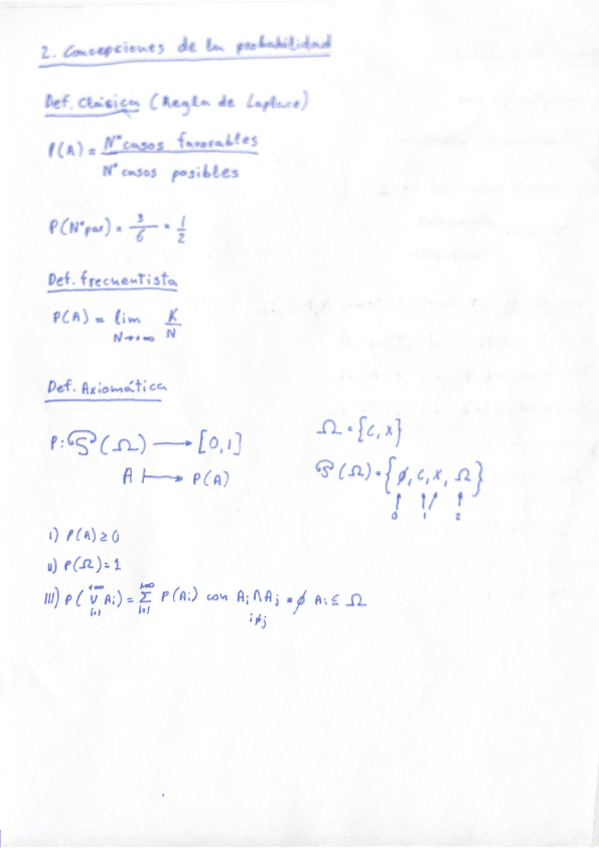 2. Concepciones de la probabilidad
Def. Clásica (Regla de Laplace)
P(A) = Nº casos favorables / Nº casos posibles
P(Nº par) = 3/6 = 1/2
Def. frecuentista
P(A) = lim N→+∞ K/N
Def. Axiomática
P: 𝒫(Ω) → [0,1]
A ↦ P(A)
Ω = {C, X}
𝒫(Ω) = {ϕ, C, X, Ω}
0 1 2
I) P(A) ≥ 0
II) P(Ω) = 1
III) P(∪ i=1 +∞ Ai) = Σ i=1 +∞ P(Ai) con Ai ∩ Aj = ϕ Ai ⊆ Ω
i≠j